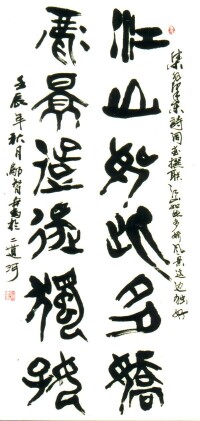 集毛澤東詩詞撰聯江山如此多嬌風景這边独好
江山如此多嬌
風景這邊獨好
壬辰年秋月書於二道河